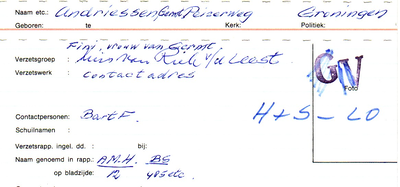 Naam etc.: Andriessen Oude Peizerweg Groningen
Geboren: te Kerk: Politiek:
Fini, vrouw van Gerrit
Verzetsgroep : Mus van Riek v/d Leest
Verzetswerk : Contact adres
GV
Foto
Contactpersonen: Bart F.
H + S - LO
Schuilnaam :
Verzetsrapp. ingel. dd. : bij:
Naam genoemd in rapp.: A.M.H. BS
op bladzijde: